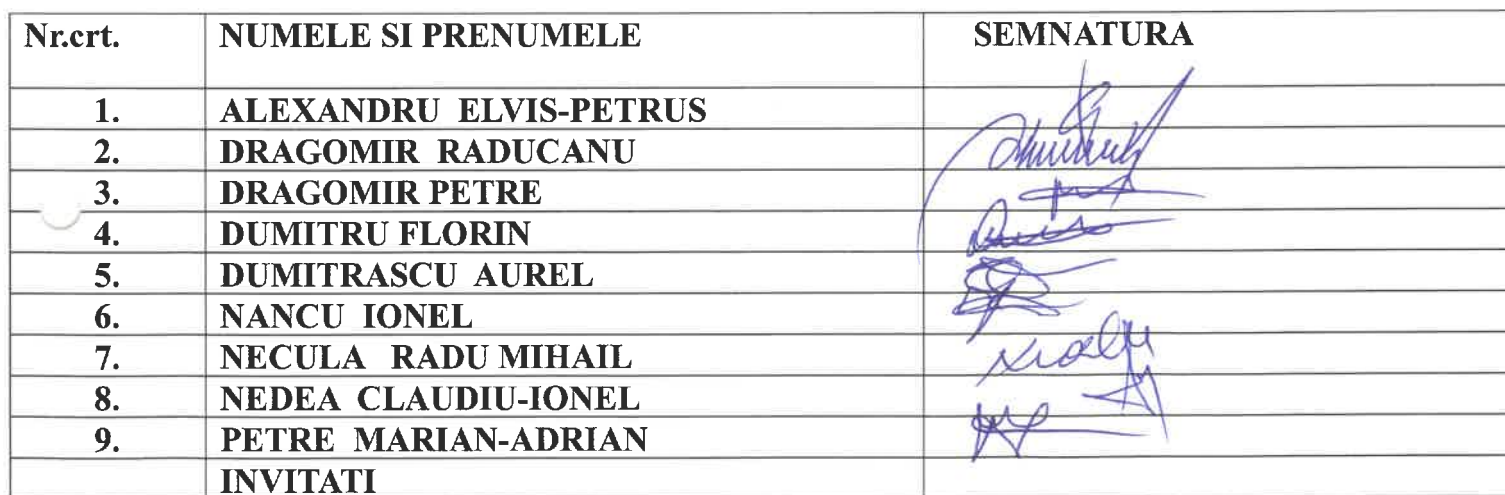 Nr.crt. NUMELE SI PRENUMELE SEMNATURA
1. ALEXANDRU ELVIS-PETRUS
2. DRAGOMIR RADUCANU
3. DRAGOMIR PETRE
4. DUMITRU FLORIN
5. DUMITRASCU AUREL
6. NANCU IONEL
7. NECULA RADU MIHAIL
8. NEDEA CLAUDIU-IONEL
9. PETRE MARIAN-ADRIAN
INVITATI